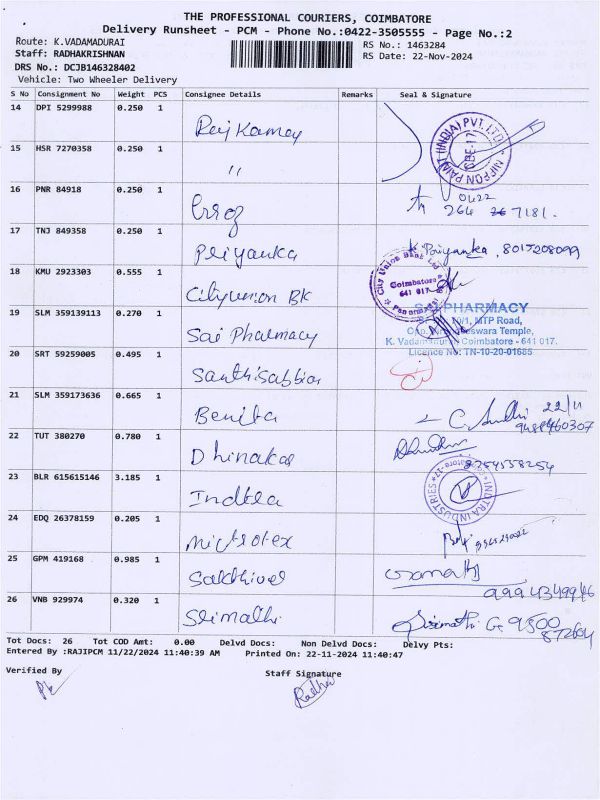 THE PROFESSIONAL COURIERS, COIMBATORE
Delivery Runsheet - PCM - Phone No.:0422-3505555 - Page No.:2
Route: K.VADAMADURAI
Staff: RADHAKRISHNAN
DRS No.: DCJB146328402
Vehicle: Two Wheeler Delivery
RS No.: 1463284
RS Date: 22-Nov-2024
S No Consignment No Weight PCS Consignee Details Remarks Seal & Signature
14 DPI 5299988 0.250 1
NIPPON PAINT (INDIA) PVT. LTD.
15 HSR 7270358 0.250 1 "
16 PNR 84918 0.250 1
0422
264 7181.
17 TNJ 849358 0.250 1 Priyanka K Priyanka, 8015208099
18 KMU 2923303 0.555 1 City union BK
City Union Bank Ltd
Coimbatore
641 017
19 SLM 359139113 0.270 1 Sai Pharmacy
PHARMACY
MTP Road,
Temple,
Coimbatore - 641 017.
Licence No: TN-10-20-01685
20 SRT 59259005 0.495 1
21 SLM 359173636 0.665 1 Benita
22/11
22 TUT 380270 0.780 1 Dhinakar
8754558254
23 BLR 615615146 3.185 1
INDTRA INDUSTRIES
24 EDQ 26378159 0.205 1 Microtex
25 GPM 419168 0.985 1 Sakthivel
9994349946
26 VNB 929974 0.320 1 Srimathi
Srimathi G. 9500
872604
Tot Docs: 26 Tot COD Amt: 0.00 Delvd Docs: Non Delvd Docs: Delvy Pts:
Entered By :RAJIPCM 11/22/2024 11:40:39 AM Printed On: 22-11-2024 11:40:47
Verified By
Staff Signature
Radha